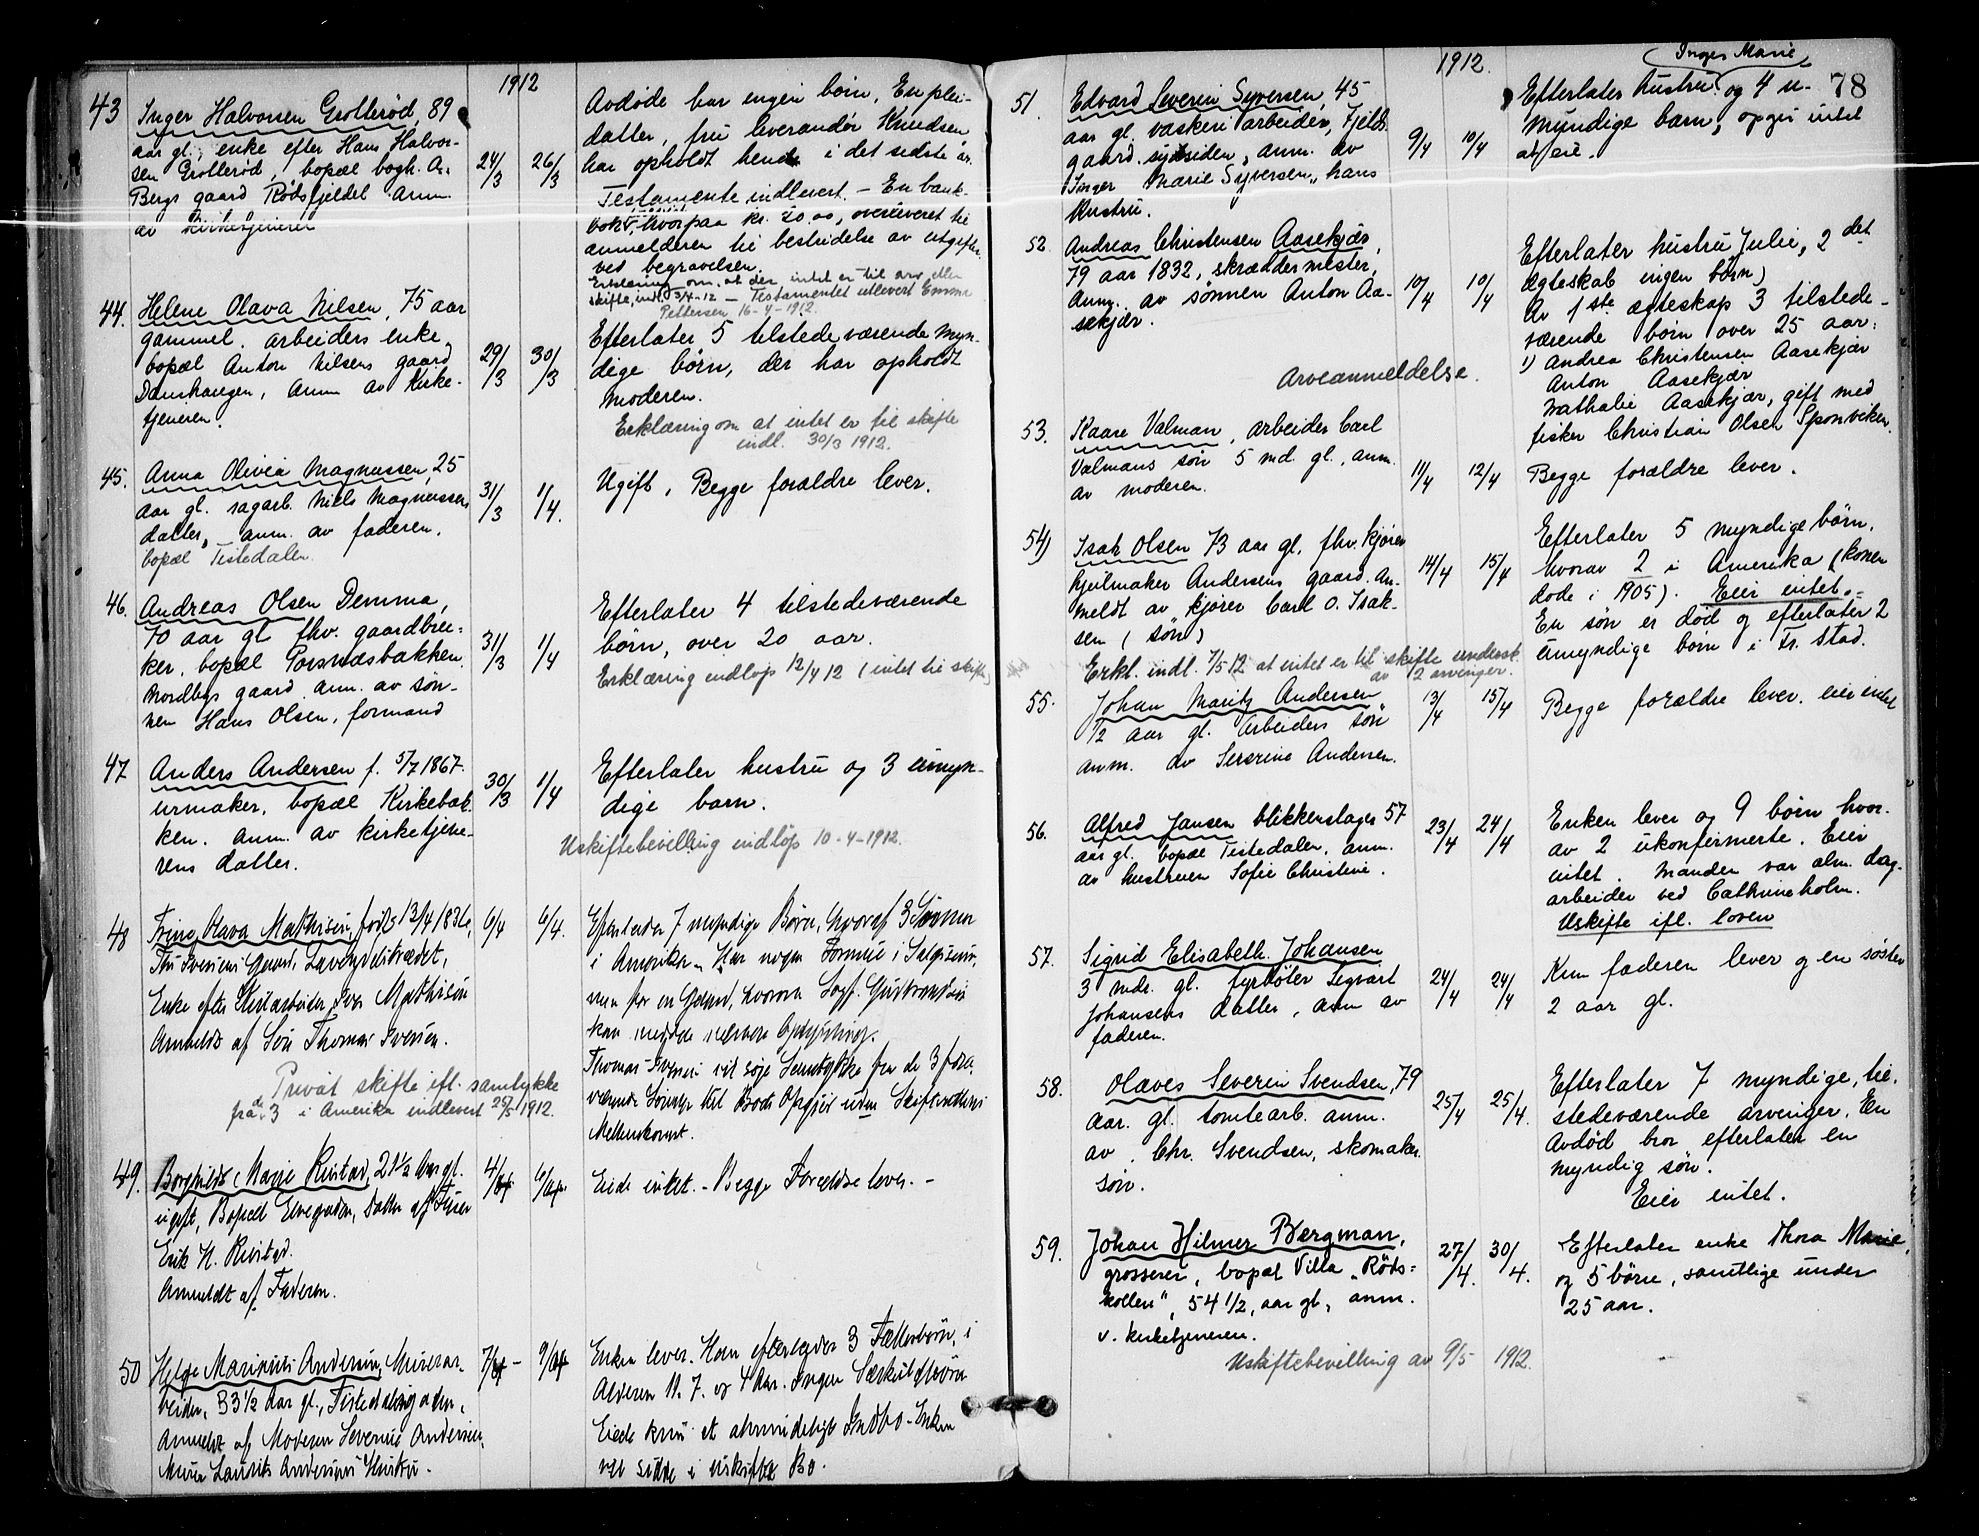 1912
43
Inger Halvorsen Grollerød, 89
aar gl., enke efter Hans Halvor-
sen Grollerød, bopæl bogh. A.
Bergs gaard Rødsfjeldet Anm.
av kirketjeneren
24/3 26/3
Avdøde har ingen børn. En plei-
datter, fru leverandør Knudsen
har opholdt hende i det sidste år.
Testamente indlevert. – En bank-
bok, hvorpaa kr. 20.00, overleveret til
anmelderen til bestridelse av utgifter
ved begravelsen.
Erklæring om, at der intet er til arv eller
skifte, indl. 3/4-12 – Testamentet utlevert Emma
Pettersen 16-4-1912.
44.
Helene Olava Nilsen, 75 aar
gammel. arbeiders enke,
bopæl Anton Nilsens gaard
Damhaugen, anm av kirke-
tjeneren.
29/3 30/3
Efterlater 5 tilstedeværende myn-
dige børn, der har opholdt
moderen.
Erklæring om at intet er til skifte
indl. 30/3 1912.
45.
Anna Olivia Magnussen, 25
aar gl. sagarb. Niels Magnussens
datter, anm. av faderen.
bopæl Tistedalen
31/3 1/4.
Ugift, Begge forældre lever.
46.
Andreas Olsen Demma,
70 aar gl fhv. gaardbru-
ker, bopæl Porsnæsbakken
Nordbys gaard anm. av søn-
nen Hans Olsen, formand
31/3 1/4
Efterlater 4 tilstedeværende
børn, over 20 aar.
Erklæring indløp 12/4 12 (intet til skifte)
47
Anders Andersen f. 5/7 1867.
urmaker, bopæl Kirkebak-
ken. anm. av kirketjene-
rens datter.
30/3 1/4
Efterlater hustru og 3 umyn-
dige barn.
Uskiftebevilling indløp 10-4-1912.
48
Trine Olava Mathisen, født 13/4 1836,
Thv Iversens Gaard, Lavendelstrædet,
Enke efter Iver Mathisen
Anmeldt af Søn Thomas Iversen.
6/4 6/4.
Efterlader 7 myndige Børn, hvoraf 3 Sønner
i Amerika. Har nogen Formue i
for en Gaard, hvorom Sagf. Gudbrandsen
kan meddele nærmere Oplysning.
Thomas Iversen vil søge Samtykke fra de 3 fra-
værende Sønner til Bodets Opgjør uden Skifterettens
Mellemkomst.
Privat skifte ifl. samtykke
fra de 3 i Amerika indlevert 25/5 1912.
49.
Borghild Marie Rivstad, 21½ Aar gl.
ugift, Bopæl Elvegaden, Datter af
Erik H. Rivstad.
Anmeldt af Faderen.
4/4 6/4.
Eiede intet. – Begge Forældre lever. –
50
Helge Marinius Andersen, Murerar-
beider, 33½ Aar gl., Tistedalsgaden,
Anmeldt af Moderen Severine Andersen,
Murer Laurits Andersens Hustru.
7/4 – 9/4
Enken lever. Han efterlader 3 Fællesbørn, i
Alderen 11. 7. og 4 Aar. Ingen Særkuldsbørn
Eiede kun et almindeligt Indbo – Enken
vil sidde i uskiftet Bo.
1912.
78
51.
Edvard Severin Syversen, 45
aar gl. vaskeri arbeider, Fjeld-
gaard. sydsiden, anm. av
Inger Marie Syversen, hans
hustru.
9/4 10/4
Inger Marie
Efterlater hustru og 4 u-
myndige barn, opgir intet
at eie.
52
Andreas Christensen Aasekjær,
79 aar 1832, skræddermester,
anm. av sønnen Anton Aa-
sekjær.
10/4 10/4
Efterlater hustru Julie, 2det
Ægteskab ingen børn)
Av 1ste ægteskap 3 tilstede-
værende børn over 25 aar:
1) Andrea Christensen Aasekjær
Anton Aasekjær
Nathalie Aasekjær, gift med
fisker Christian Olsen Sponviken.
Arveanmeldelse.
53.
Kaare Valman, arbeider Carl
Valmans søn 5 md. gl., anm.
av moderen.
11/4 12/4
Begge forældre lever.
54)
Isak Olsen 73 aar gl. fhv. kjører
hjulmaker Andersens gaard. An-
meldt av kjører Carl O. Isak-
sen (søn)
14/4 15/4
Efterlater 5 myndige børn,
hvorav 2 i Amerika (konen
døde i 1905). Eier intet.
En søn er død og efterlater 2
umyndige børn i Fr.stad.
Erkl. indl. 7/5 12 at intet er til skifte undersk.
av 2 arvinger.
55.
Johan Moritz Andersen
½ aar gl. arbeiders søn
anm. av Severine Andersen.
13/4 15/4
Begge forældre lever. eier intet
56.
Alfred Jansen blikkenslager 57
aar gl. bopæl Tistedalen, anm.
av hustruen Sofie Christine.
23/4 24/4
Enken lever og 9 børn hvor-
av 2 ukonfirmerte. Eier
intet. Manden var alm. dag-
arbeider ved Cathrineholm.
Uskifte ifl. loven
57.
Sigrid Elisabeth Johansen
3 mdr. gl. fyrbøter Sigvart
Johansens datter, anm av
faderen.
24/4 24/4
Kun faderen lever og en søster
2 aar gl.
58.
Olaves Severin Svendsen, 79
aar. gl. tomtearb. anm.
av Chr. Svendsen, skomaker
søn.
25/4 25/4.
Efterlater 7 myndige, til-
stedeværende arvinger. En
avdød bror efterlater en
myndig søn.
Eier intet.
59.
Johan Hilmer Bergman,
grosserer, bopæl Villa „Røds-
kollen", 54½, aar gl, anm.
v. kirketjeneren.
27/4. 30/4.
Efterlater enke Thora Marie,
og 5 børn, samtlige under
25 aar.
Uskiftebevilling av 9/5 1912.